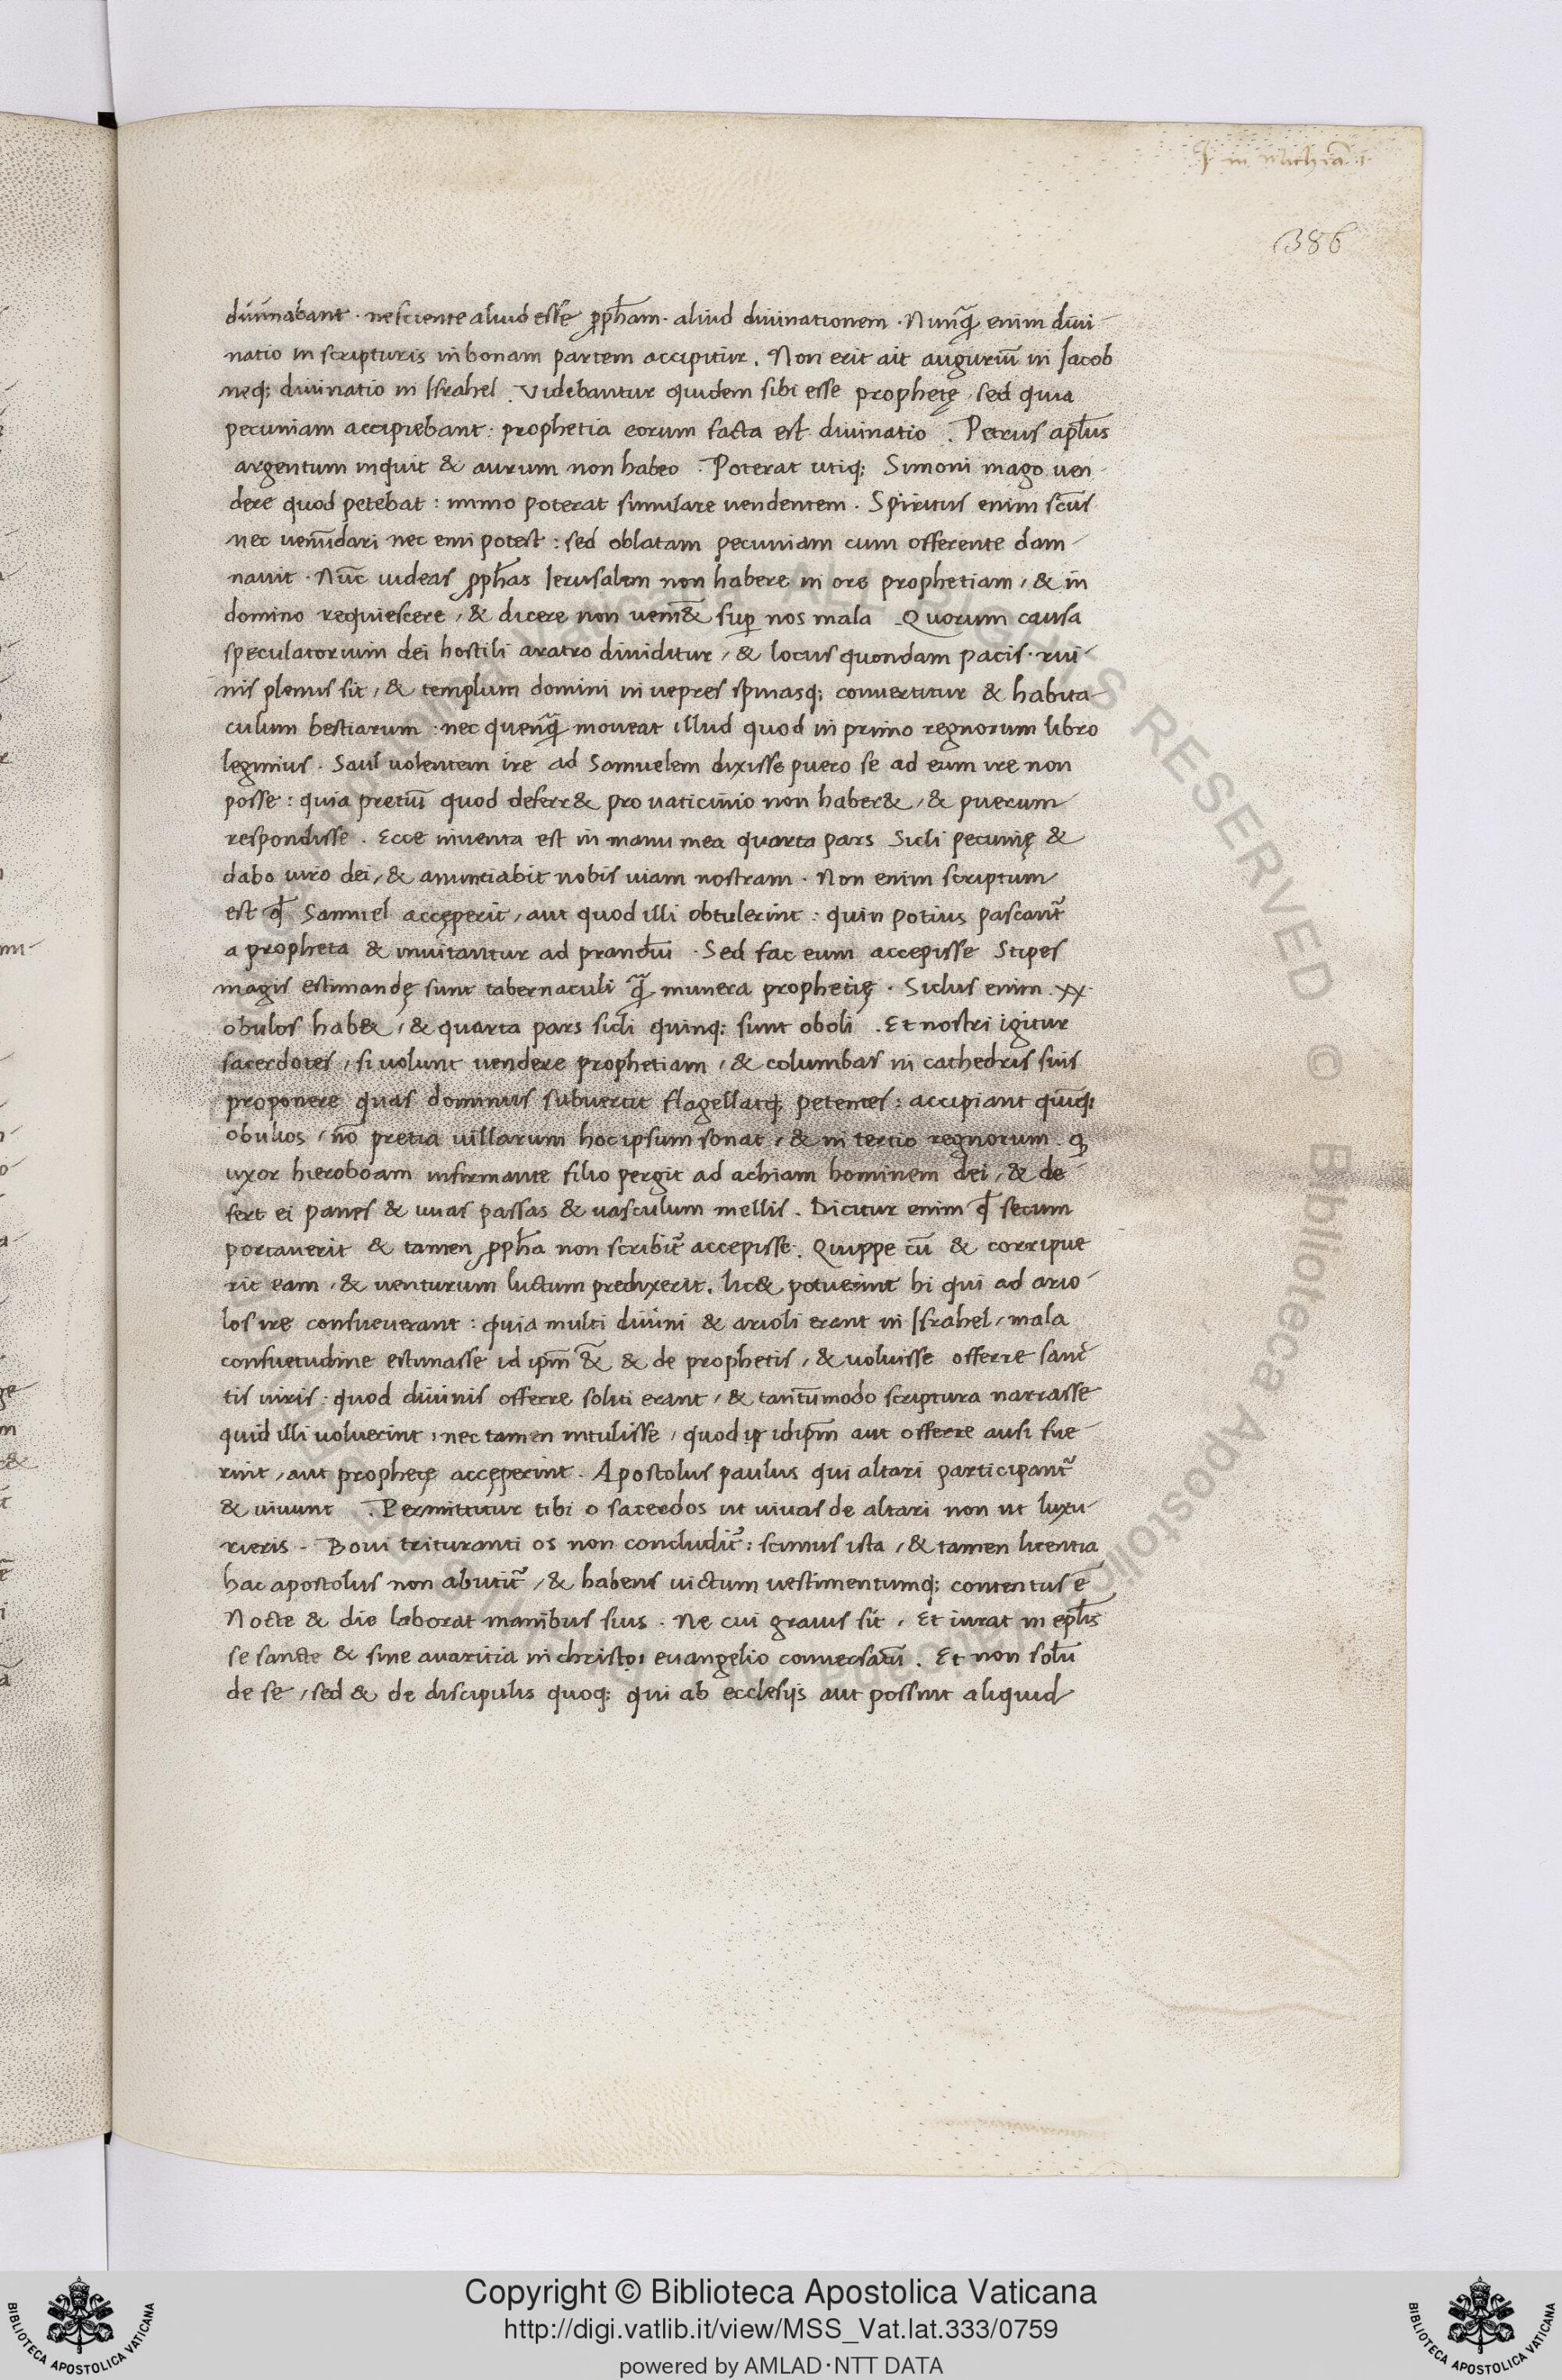 I in Michiā ·i·
386
diuinabant · nesciente aliud esse ꝓph̄am · aliud diuinationem · Nunꝗ̄ enim diui
natio in scripturis in bonam partem accipitur . Non erit ait auguriū in Jacob
neq; diuinatio in Israhel . Videbantur quidem sibi esse prophetę , sed quia
pecuniam accipiebant : prophetia eorum facta est diuinatio . Petrus apl̄us
argentum inquit & aurum non habeo . Poterat utiq; Simoni mago uen
dere quod petebat : immo poterat simulare uendentem . Spiritus enim sc̄us
nec uenūdari nec emi potest : sed oblatam pecuniam cum offerente dam
nauit . Nūc uideas ꝓph̄as Ierusalem non habere in ore prophetiam , & in
domino requiescere , & dicere non ueni& sup̱ nos mala . Quorum causa
speculatorium dei hostili aratro diuiditur , & locus quondam pacis · rui
nis plenus sit , & templum domini in uepres spinasq; conuertitur & habita
culum bestiarum · nec quenꝗ̄ moueat illud quod in primo regnorum libro
legimus . Saul uolentem ire ad Samuelem dixisse puero se ad eum ire non
posse : quia pretiū quod deferr& pro uaticinio non haber& , & puerum
respondisse . Ecce inuenta est in manu mea quarta pars Sicli pecunię &
dabo uiro dei , & anunciabit nobis uiam nostram . Non enim scriptum
est ꝙ Samuel accęperit , aut quod illi obtulerint : quin potius pascant̄
a propheta & inuitantur ad prandiū . Sed fac eum accepisse Stipes
magis estimandę sunt tabernaculi ꝗ̄ munera prophetię . Siclus enim xx
obulos hab& , & quarta pars sicli quinq; sunt oboli . Et nostri igitur
sacerdotes , si uolunt uendere prophetiam , & columbas in cathedris suis
proponere quas dominus subuertit flagellatq; petentes : accipiant quīq;
obulos , nō pretia uillarum hoc ipsum sonat , & in tertio regnorum . ꝙ
uxor hieroboam infirmante filio pergit ad achiam hominem dei , & de
fert ei panes & uuas passas & uasculum mellis . Dicitur enim ꝙ secum
portauerit & tamen ꝓph̄a non scribit̄ accepisse . Quippe cū & corripue
rit eam , & uenturum luctum predixerit . lic& potuerint hi qui ad ario
los ire consueuerant : quia multi diuini & arioli erant in Israhel , mala
consuetudine estimasse id ip̄m & & de prophetis , & uoluisse offerre sanc
tis uiris : quod diuinis offerre soliti erant , & tantūmodo scriptura narrasse
quid illi uoluerint , nec tamen intulisse , quod idip̄m aut offerre ausi fue
rint , aut prophetę accęperint . Apostolus paulus qui altari participant̄
& uiuunt . Permittitur tibi o sacerdos ut uiuas de altari non ut luxu
rieris . Boui trituranti os non concludit̄ : scimus ista , & tamen licentia
hac apostolus non abutit̄ , & habens uictum uestimentumq; contentus ē
Nocte & die laborat manibus suis . Ne cui grauis sit , Et iurat in epl̄is
se sancte & sine auaritia in christo, euangelio conuersatū . Et non solū
de se , sed & de discipulis quoq; qui ab ecclesijs aut possint aliquid
Copyright © Biblioteca Apostolica Vaticana
http://digi.vatlib.it/view/MSS_Vat.lat.333/0759
powered by AMLAD·NTT DATA